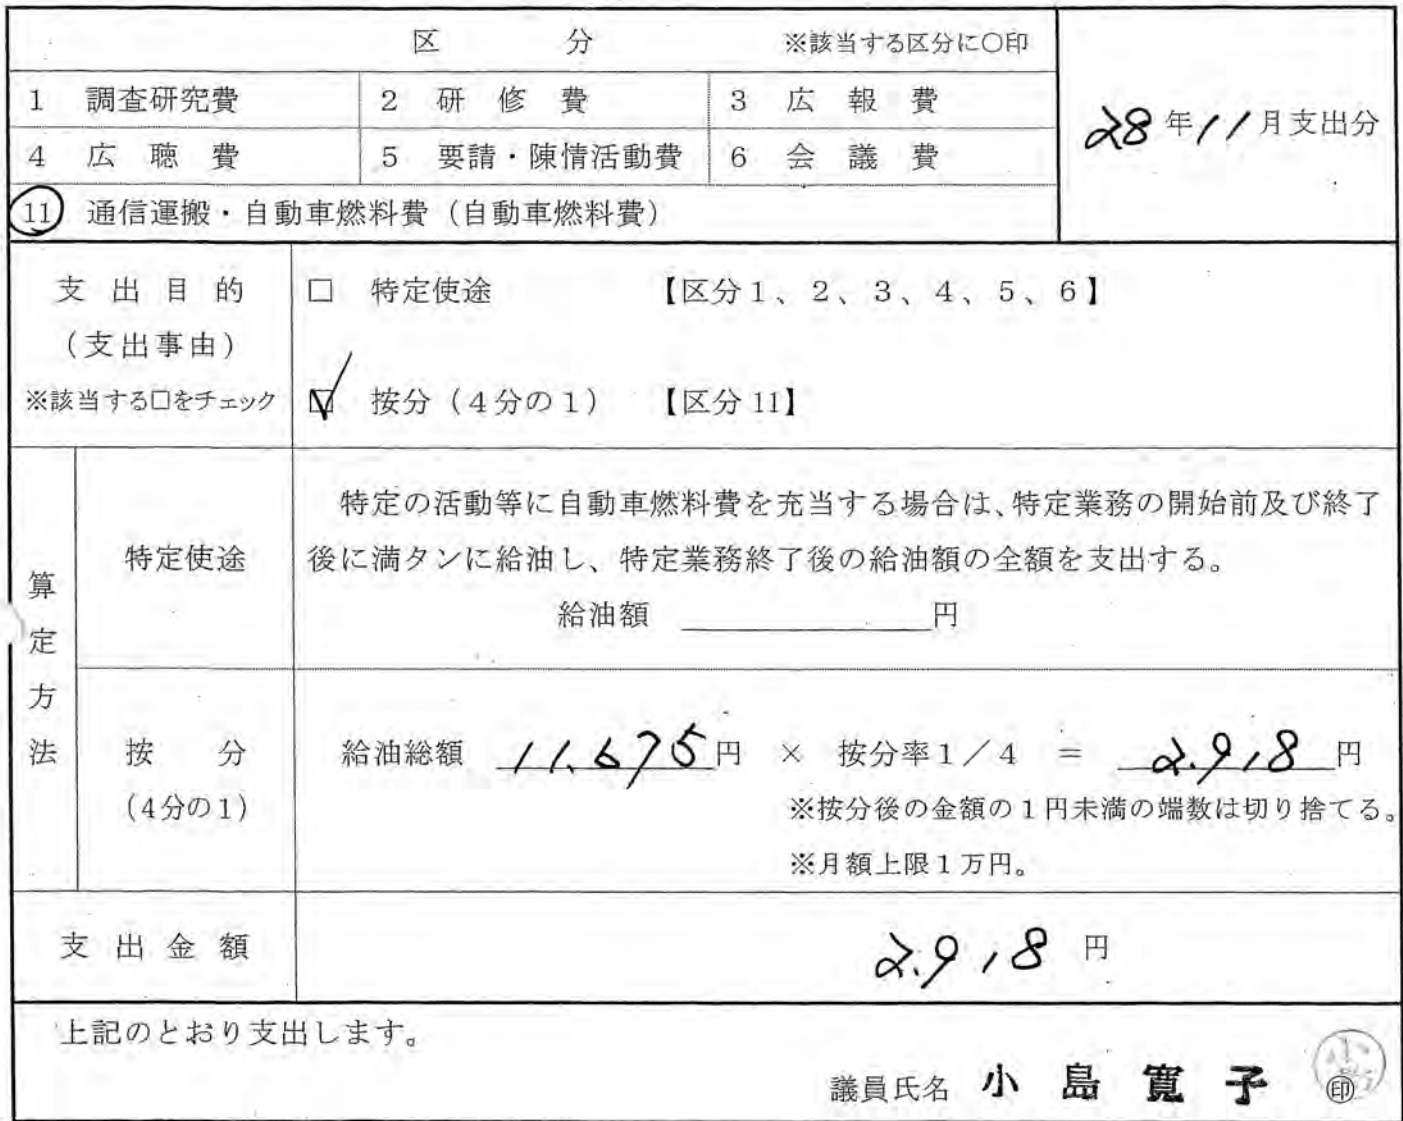 区 分 ※該当する区分に○印
1 調査研究費 2 研修費 3 広報費
28年11月支出分
4 広聴費 5 要請・陳情活動費 6 会議費
11 通信運搬・自動車燃料費（自動車燃料費）
支出目的 □ 特定使途 【区分1、2、3、4、5、6】
（支出事由）
※該当する□をチェック ☑ 按分（4分の1） 【区分11】
算定方法
特定使途
特定の活動等に自動車燃料費を充当する場合は、特定業務の開始前及び終了
後に満タンに給油し、特定業務終了後の給油額の全額を支出する。
給油額 円
按分
（4分の1）
給油総額 11.675円 × 按分率1／4 ＝ 2.918円
※按分後の金額の1円未満の端数は切り捨てる。
※月額上限1万円。
支出金額 2.918円
上記のとおり支出します。
議員氏名 小島寛子 ㊞